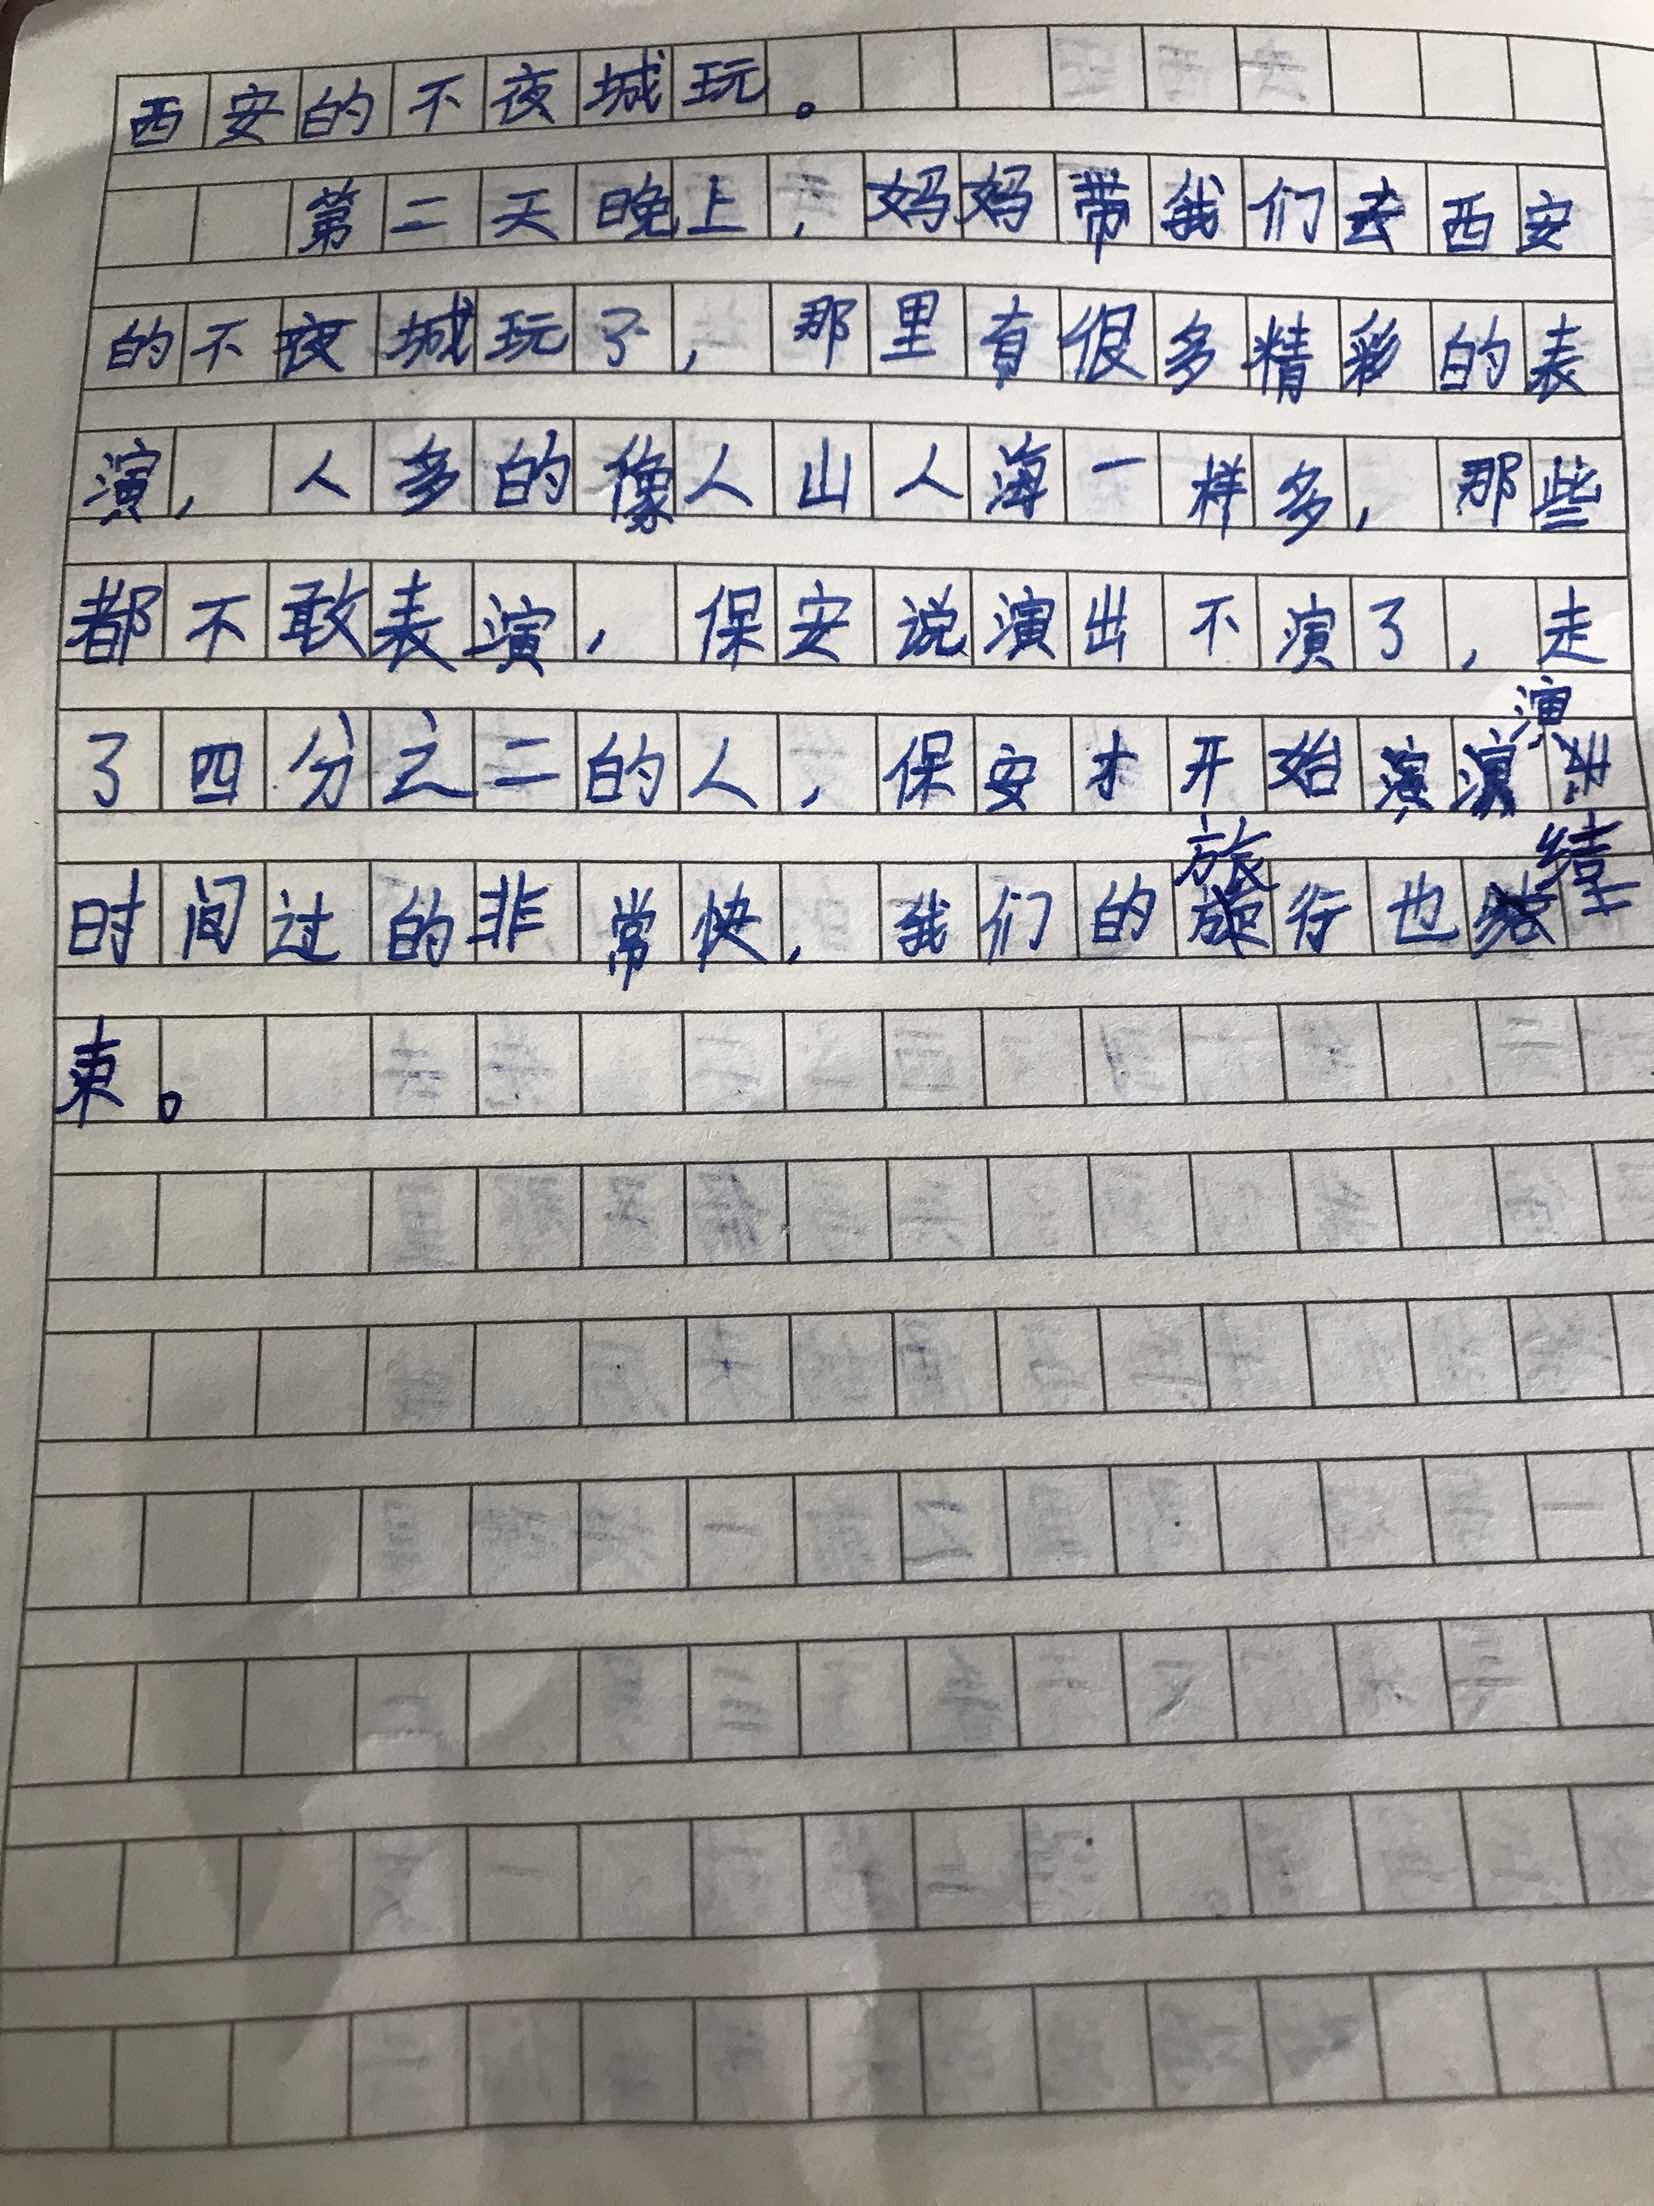 西安的不夜城玩。
第二天晚上，妈妈带我们去西安
的不夜城玩了，那里有很多精彩的表
演，人多的像人山人海一样多，那些
都不敢表演，保安说演出不演了，走
了四分之二的人，保安才开始演演出
时间过的非常快，我们的旅行也结
束。